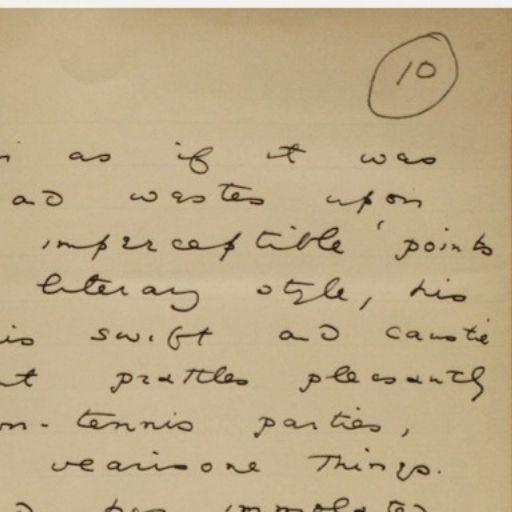 10
as if it was
and wastes upon
imperceptible points
literary style, his
is swift and caustic
prattles pleasantly
tennis parties,
wearisome Things.